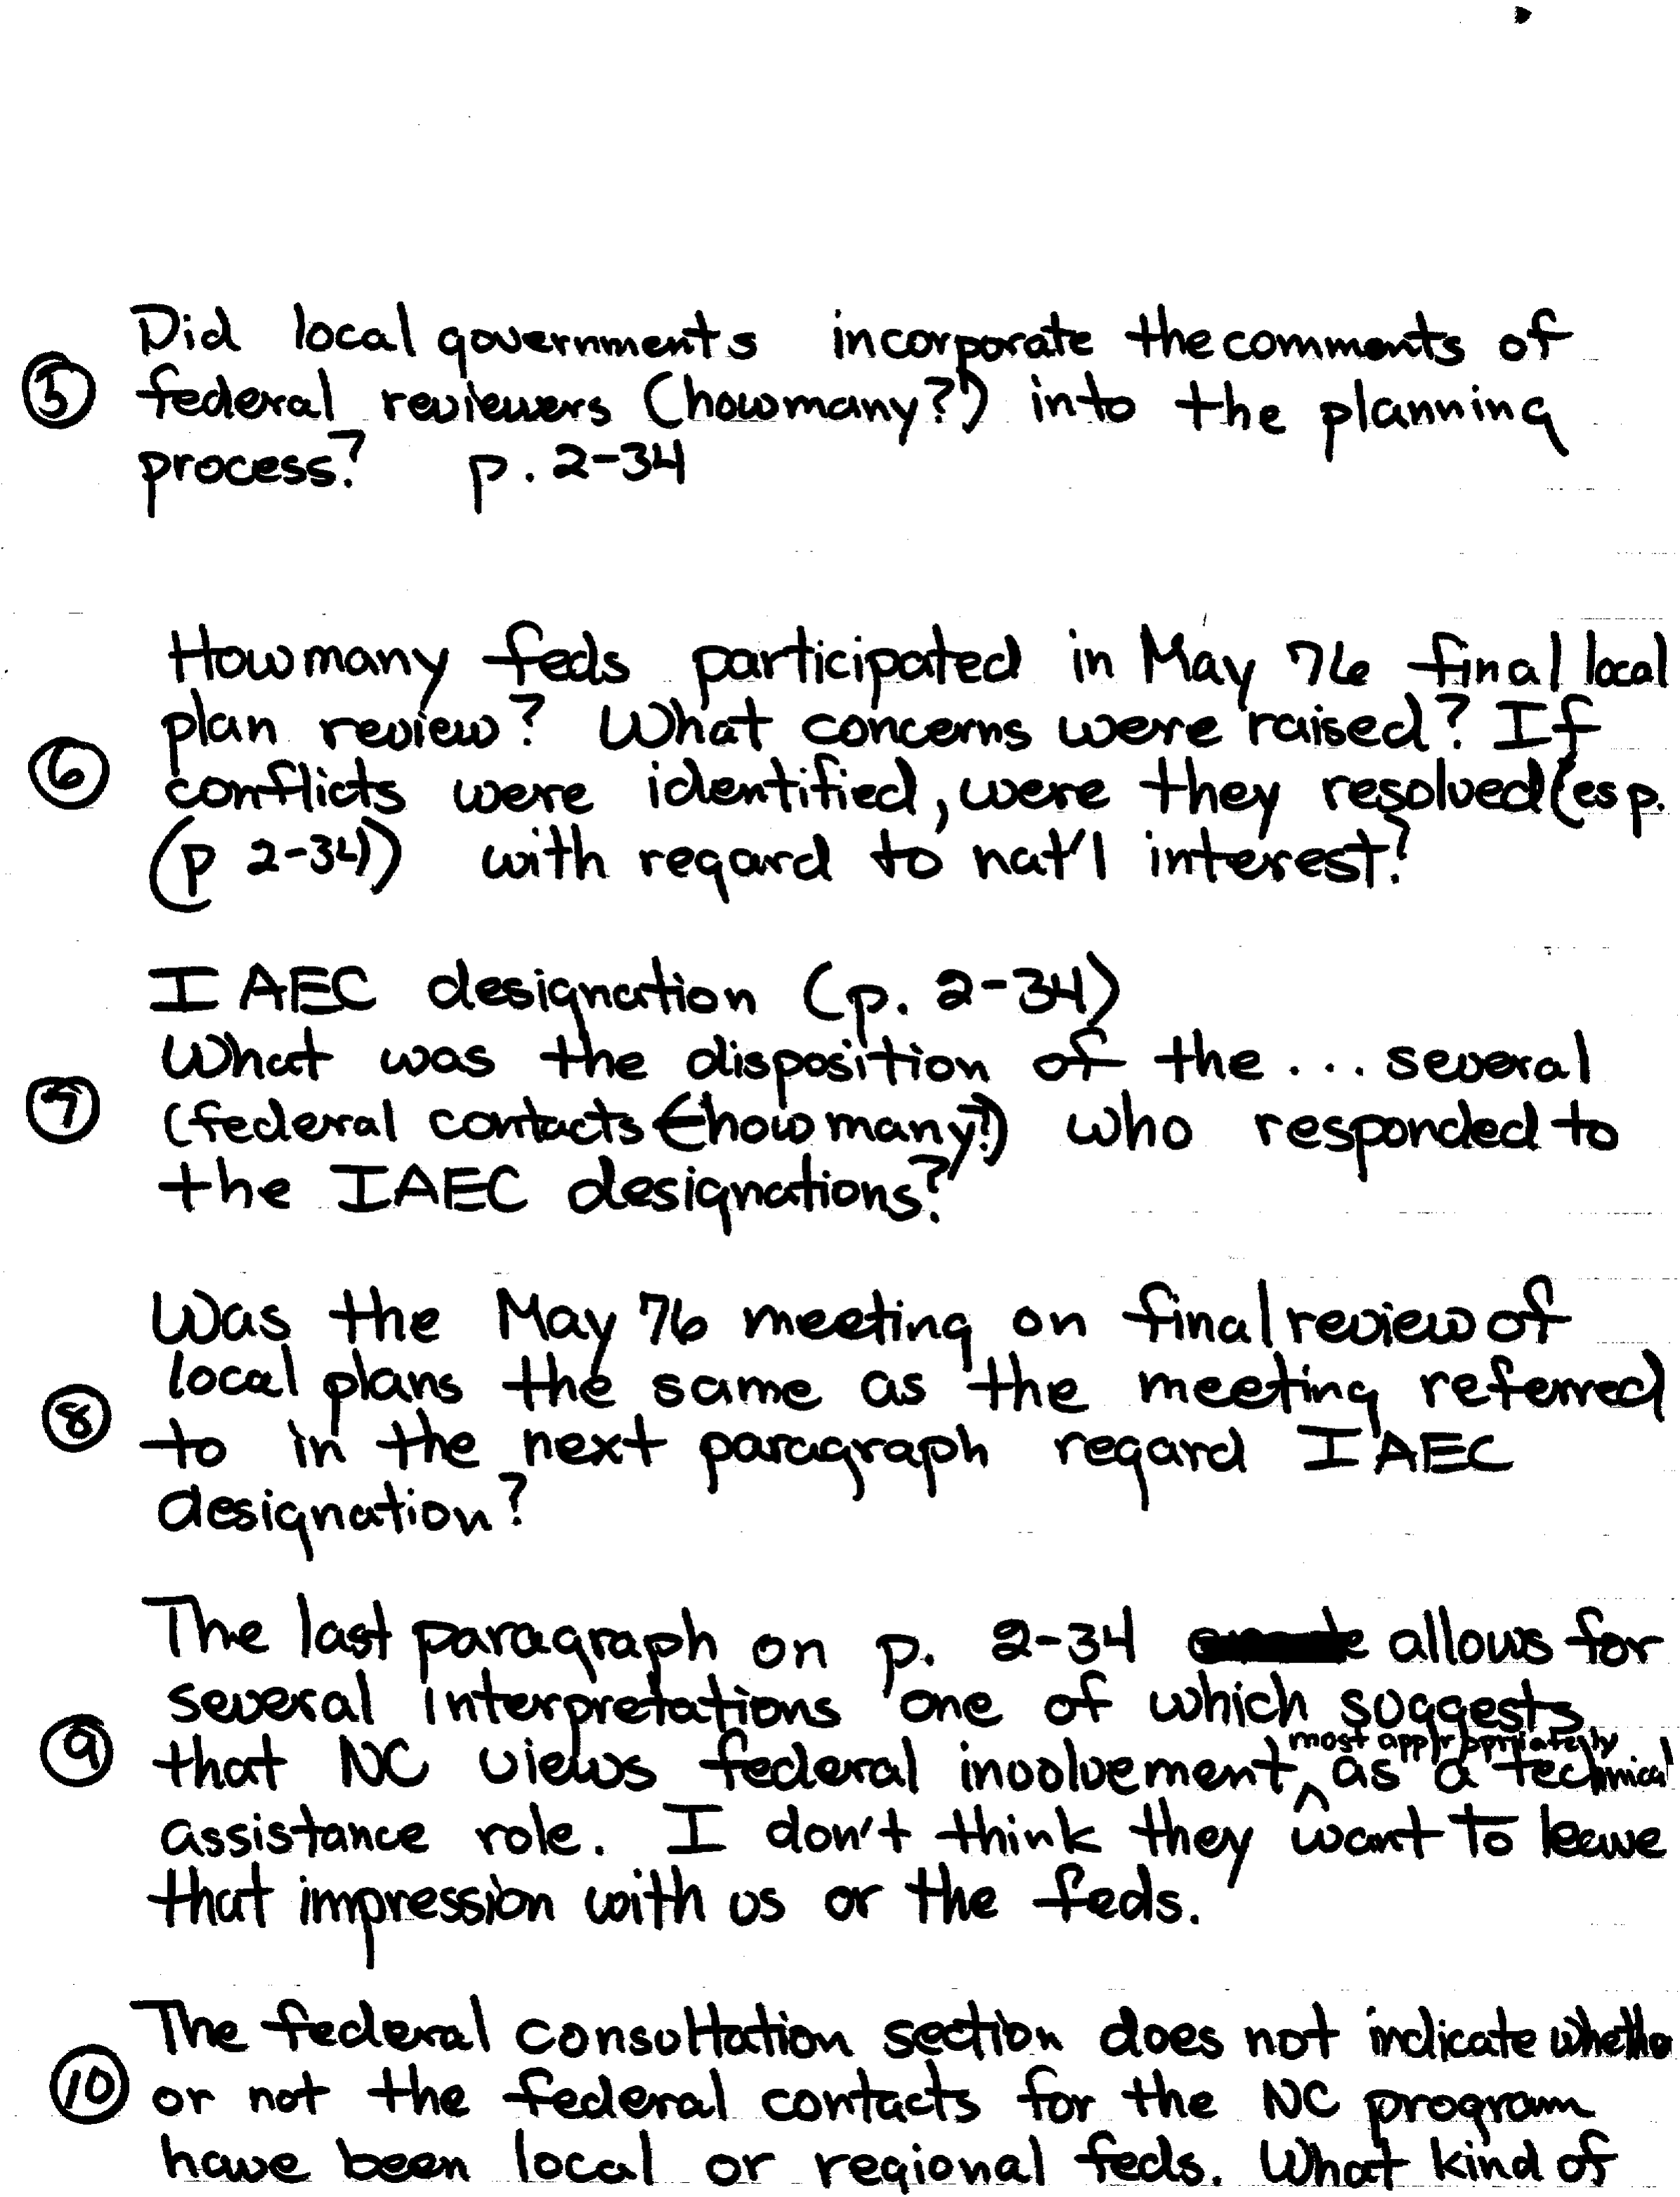 Did local governments incorporate the comments of
⑤ federal reviewers (how many?) into the planning
process? p. 2-34
How many feds participated in May 76 final local
plan review? What concerns were raised? If
⑥ conflicts were identified, were they resolved (esp.
(p 2-34)) with regard to nat'l interest?
IAEC designation (p. 2-34)
What was the disposition of the ... several
⑦ (federal contacts (how many?) who responded to
the IAEC designations?
Was the May 76 meeting on final review of
local plans the same as the meeting referred
⑧ to in the next paragraph regard IAEC
designation?
The last paragraph on p. 2-34 allows for
several interpretations one of which suggests
most appropriately
⑨ that NC views federal involvement ^ as a technical
assistance role. I don't think they want to leave
that impression with us or the feds.
The federal consultation section does not indicate whether
⑩ or not the federal contacts for the NC program
have been local or regional feds. What kind of